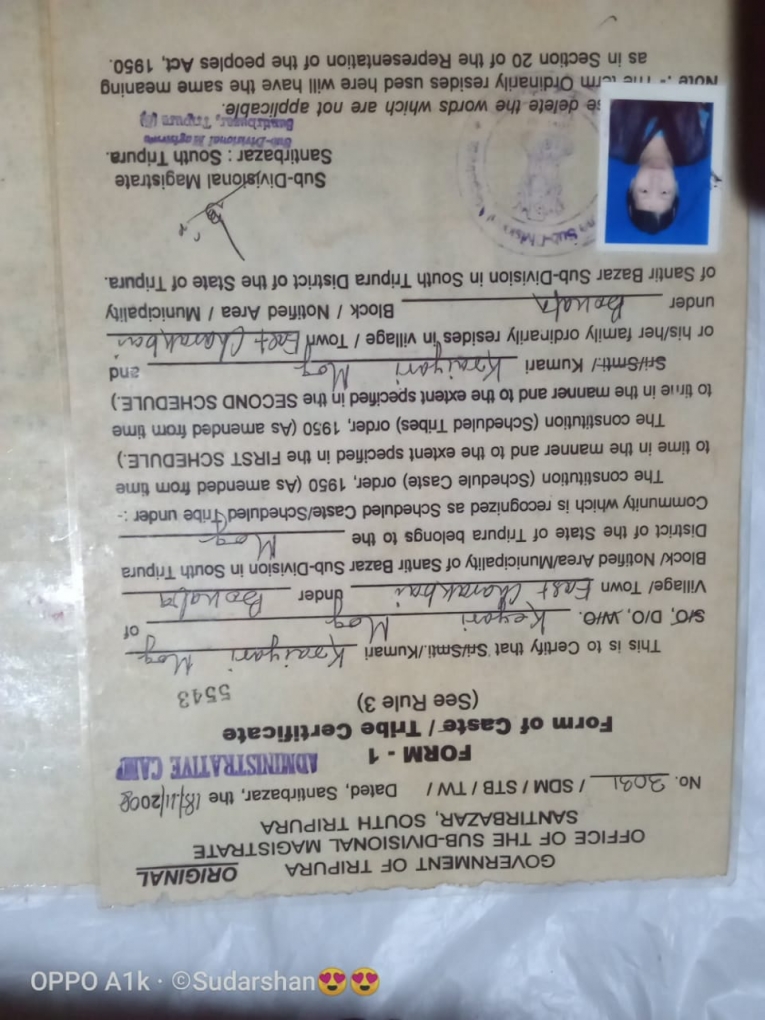 ORIGINAL
GOVERNMENT OF TRIPURA
OFFICE OF THE SUB-DIVISIONAL MAGISTRATE
SANTIRBAZAR, SOUTH TRIPURA
No. 3091 / SDM / STB / TW / Dated, Santirbazar, the 18/11/2008
ADMINISTRATIVE CAMP
FORM - 1
Form of Caste / Tribe Certificate
(See Rule 3)
5543
This is to Certify that Sri/Smti./Kumari Kraiyari Mog
S/O, D/O, W/O. Keyari Mog of
Village/ Town East Charakbai under Bokafa
Block/ Notified Area/Municipality of Santir Bazar Sub-Division in South Tripura
District of the State of Tripura belongs to the Mog
Community which is recognized as Scheduled Caste/Scheduled Tribe under :-
The constitution (Schedule Caste) order, 1950 (As amended from time
to time in the manner and to the extent specified in the FIRST SCHEDULE.)
The constitution (Scheduled Tribes) order, 1950 (As amended from time
to time in the manner and to the extent specified in the SECOND SCHEDULE.)
Sri/Smti./ Kumari Kraiyari Mog and
or his/her family ordinarily resides in village / Town East Charakbai
under Bokafa Block / Notified Area / Municipality
of Santir Bazar Sub-Division in South Tripura District of the State of Tripura.
Sub-Divisional Magistrate
Santirbazar : South Tripura.
Sub-Divisional Magistrate
Santirbazar, Tripura (S)
se delete the words which are not applicable.
Note :- The term Ordinarily resides used here will have the same meaning
as in Section 20 of the Representation of the peoples Act, 1950.
OPPO A1k · ©Sudarshan😍😍